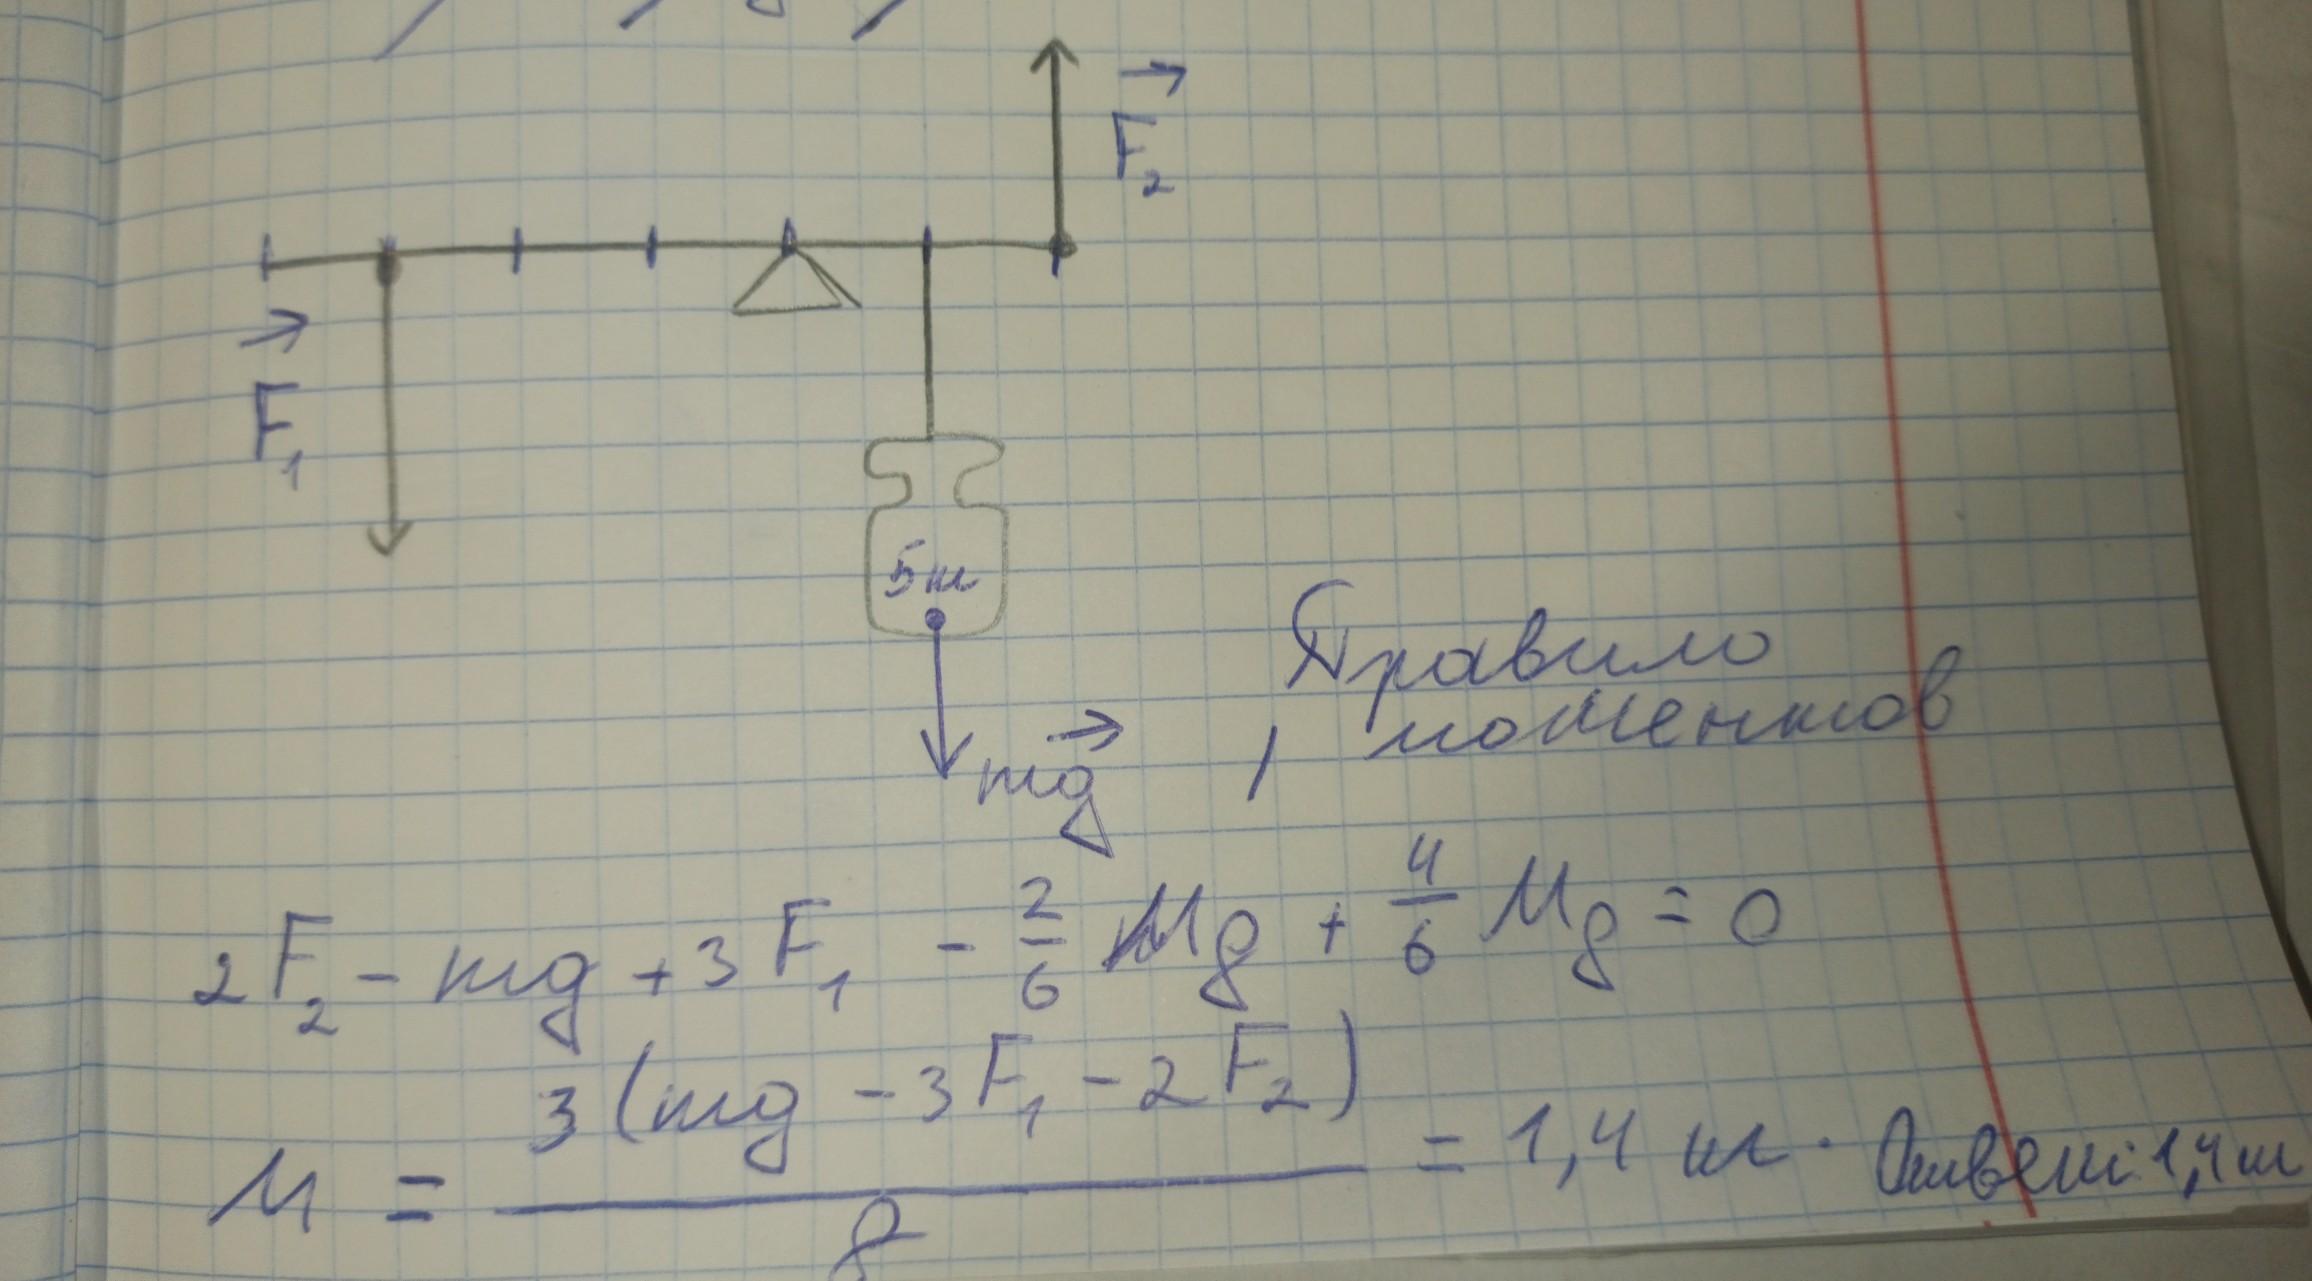 F₂
F₁
5кг
mg
Правило
моментов
2F₂ - mg + 3F₁ - 2/6 Mg + 4/6 Mg = 0
M = 3(mg - 3F₁ - 2F₂) / g = 1,4 кг. Ответ: 1,4 кг